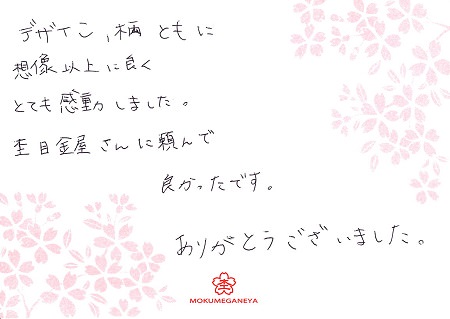 デザイン、柄ともに
想像以上に良く
とても感動しました。
杢目金屋さんに頼んで
良かったです。
ありがとうございました。
杢
MOKUMEGANEYA